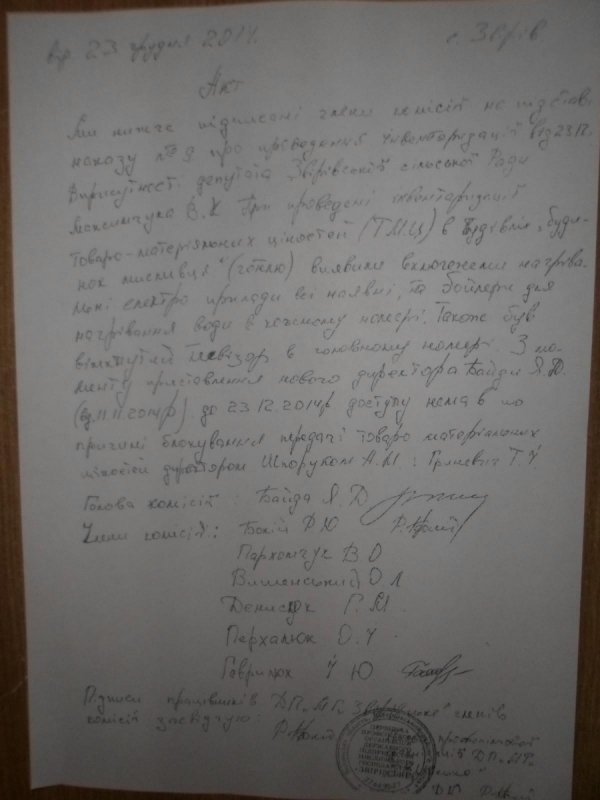 від 23 грудня 2014. с. Звірів
Акт
Ми нижче підписані члени комісій на підставі
наказу № про проведення інвентаризації від 23.12.
В присутності депутата Звірівської сільської Ради
Максимчука В.К При проведені інвентаризації
товаро-матеріальних цінностей (ТМЦ) в будівлі "буди-
нок мисливця" (готлю) виявили включеними нагріва-
льні електро прилади всі наявні, та бойлери для
нагрівання води в кожному номері. Також був
телевізор в головному номері. З мо-
менту приставлення нового директора Байди Я.Д.
(від 11.11.2014р) до 23.12.2014р доступу нема в по
причині блокування передачі товаро матеріальних
цінностей директором Шпоруком А.М і Гриневич Т.
Голова комісій : Байда Я.Д
Члени комісій : Бокій Р Ю
Пархомчук В.О
Вишенський О Л
Денисюк Г.М.
Перхалюк О.
Гаврилюк Ю
Підписи працівників ДП "МГ" Звірівське" членів
комісій засвідчую: